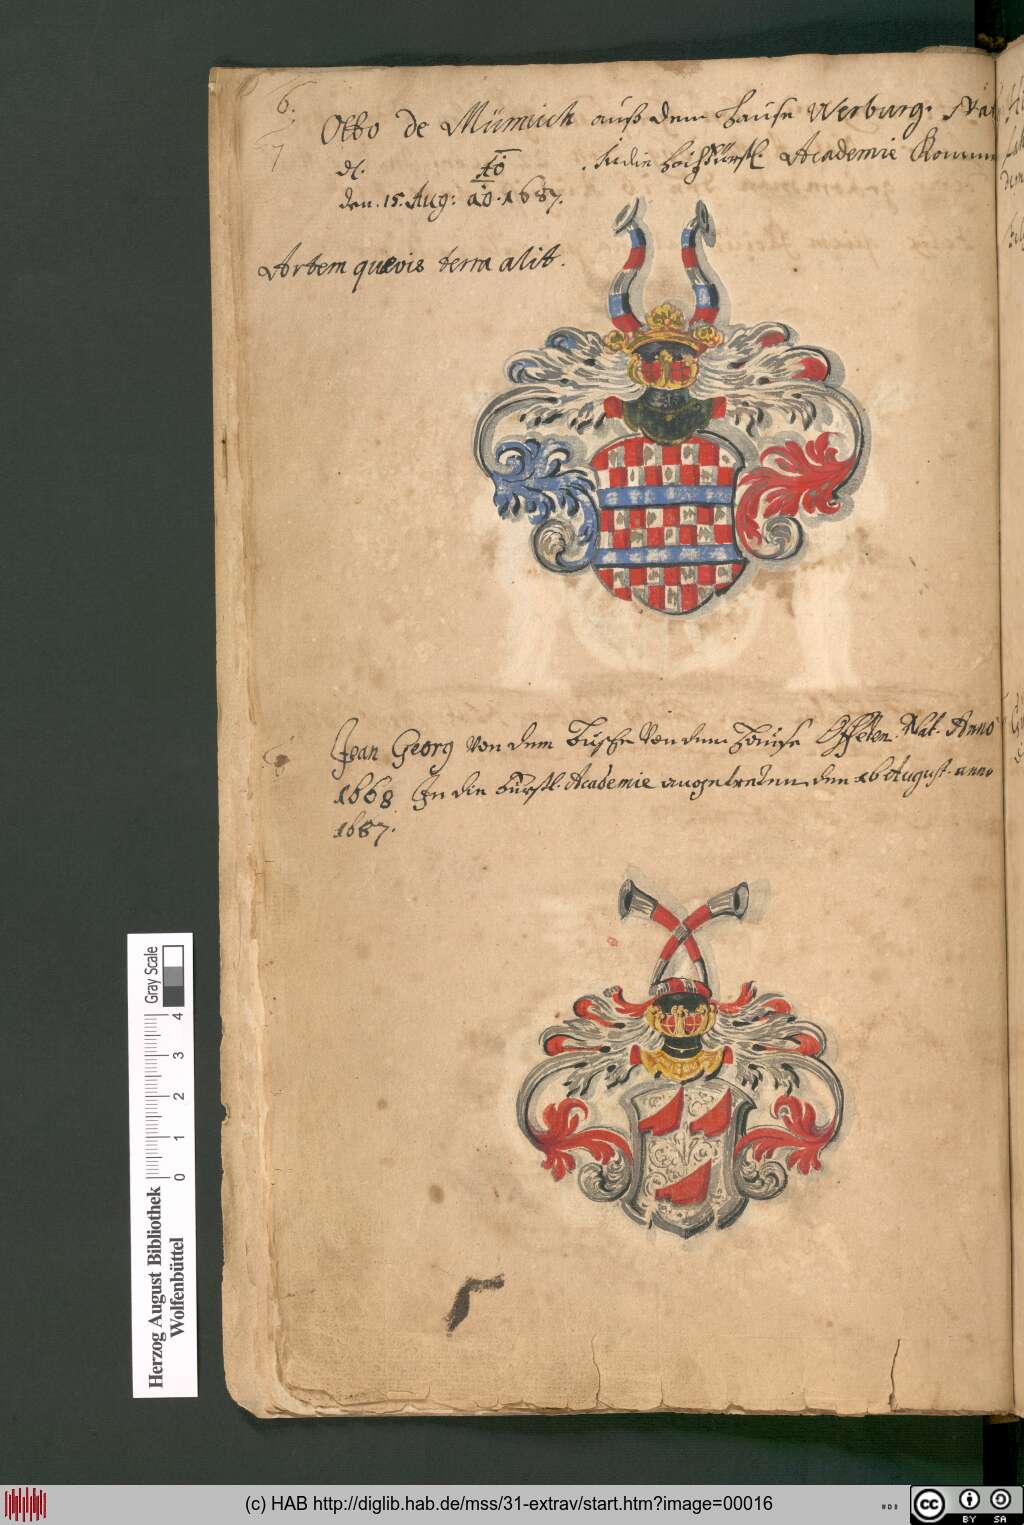 6.
7
Otto de Münnich auß dem Hause Werburg.
den. 15. Aug: ao. 1687.
In die hochfürstl. Academie Komm
Artem quævis terra alit.
Jean Georg Von dem Busche Von dem Hause Nat. Anno
1668 In die Fürstl. Academie angetreten den 16 August. anno
1687.
Herzog August Bibliothek
Wolfenbüttel
0 1 2 3 4
Gray Scale
(c) HAB http://diglib.hab.de/mss/31-extrav/start.htm?image=00016
cc BY SA